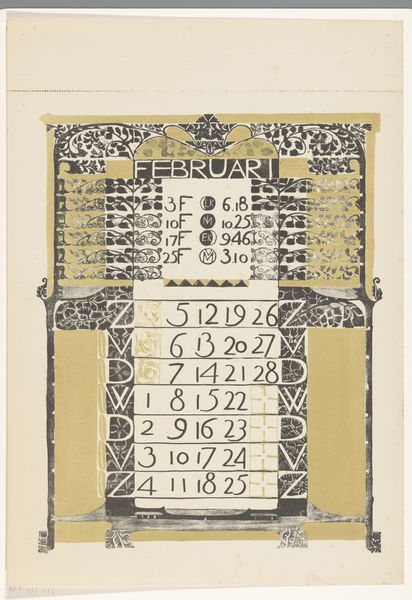 FEBRUARI
3 F 6.18
10 F M 10 25
17 F 9 46
25 F M 3.10
Z 5 12 19 26 Z
V 6 13 20 27 V
D 7 14 21 28 D
W 1 8 15 22 W
D 2 9 16 23 D
V 3 10 17 24 V
Z 4 11 18 25 Z